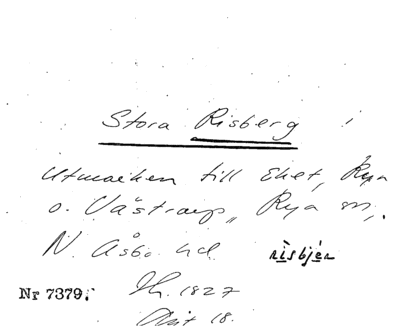 Stora Risberg
Utmarken till Eket, Rya
o. Västraryp, Rya sn,
N. Åsbo hd.
rìsbjér
Nr 7379. Th. 1827
Akt 18.